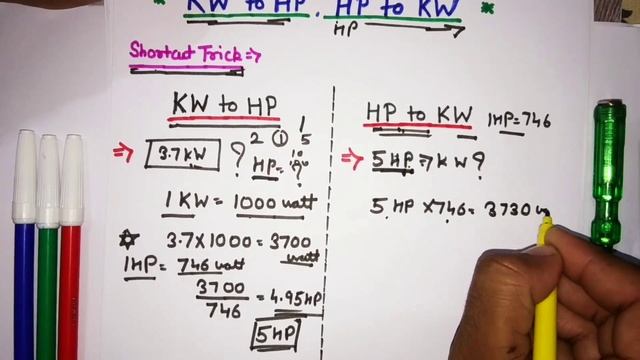 * KW to HP. HP to KW *
HP
Shortcut Trick ⇒
KW to HP
⇒ 3.7 KW ?
2 ① 1 5
10
HP = ?
1 KW = 1000 watt
☆ 3.7 X 1000 = 3700 watt
1HP = 746 watt
3700
746
= 4.95 HP
5 HP
HP to KW
1HP = 746
⇒ 5 HP ⇒ KW ?
5 HP X 746 = 3730 w